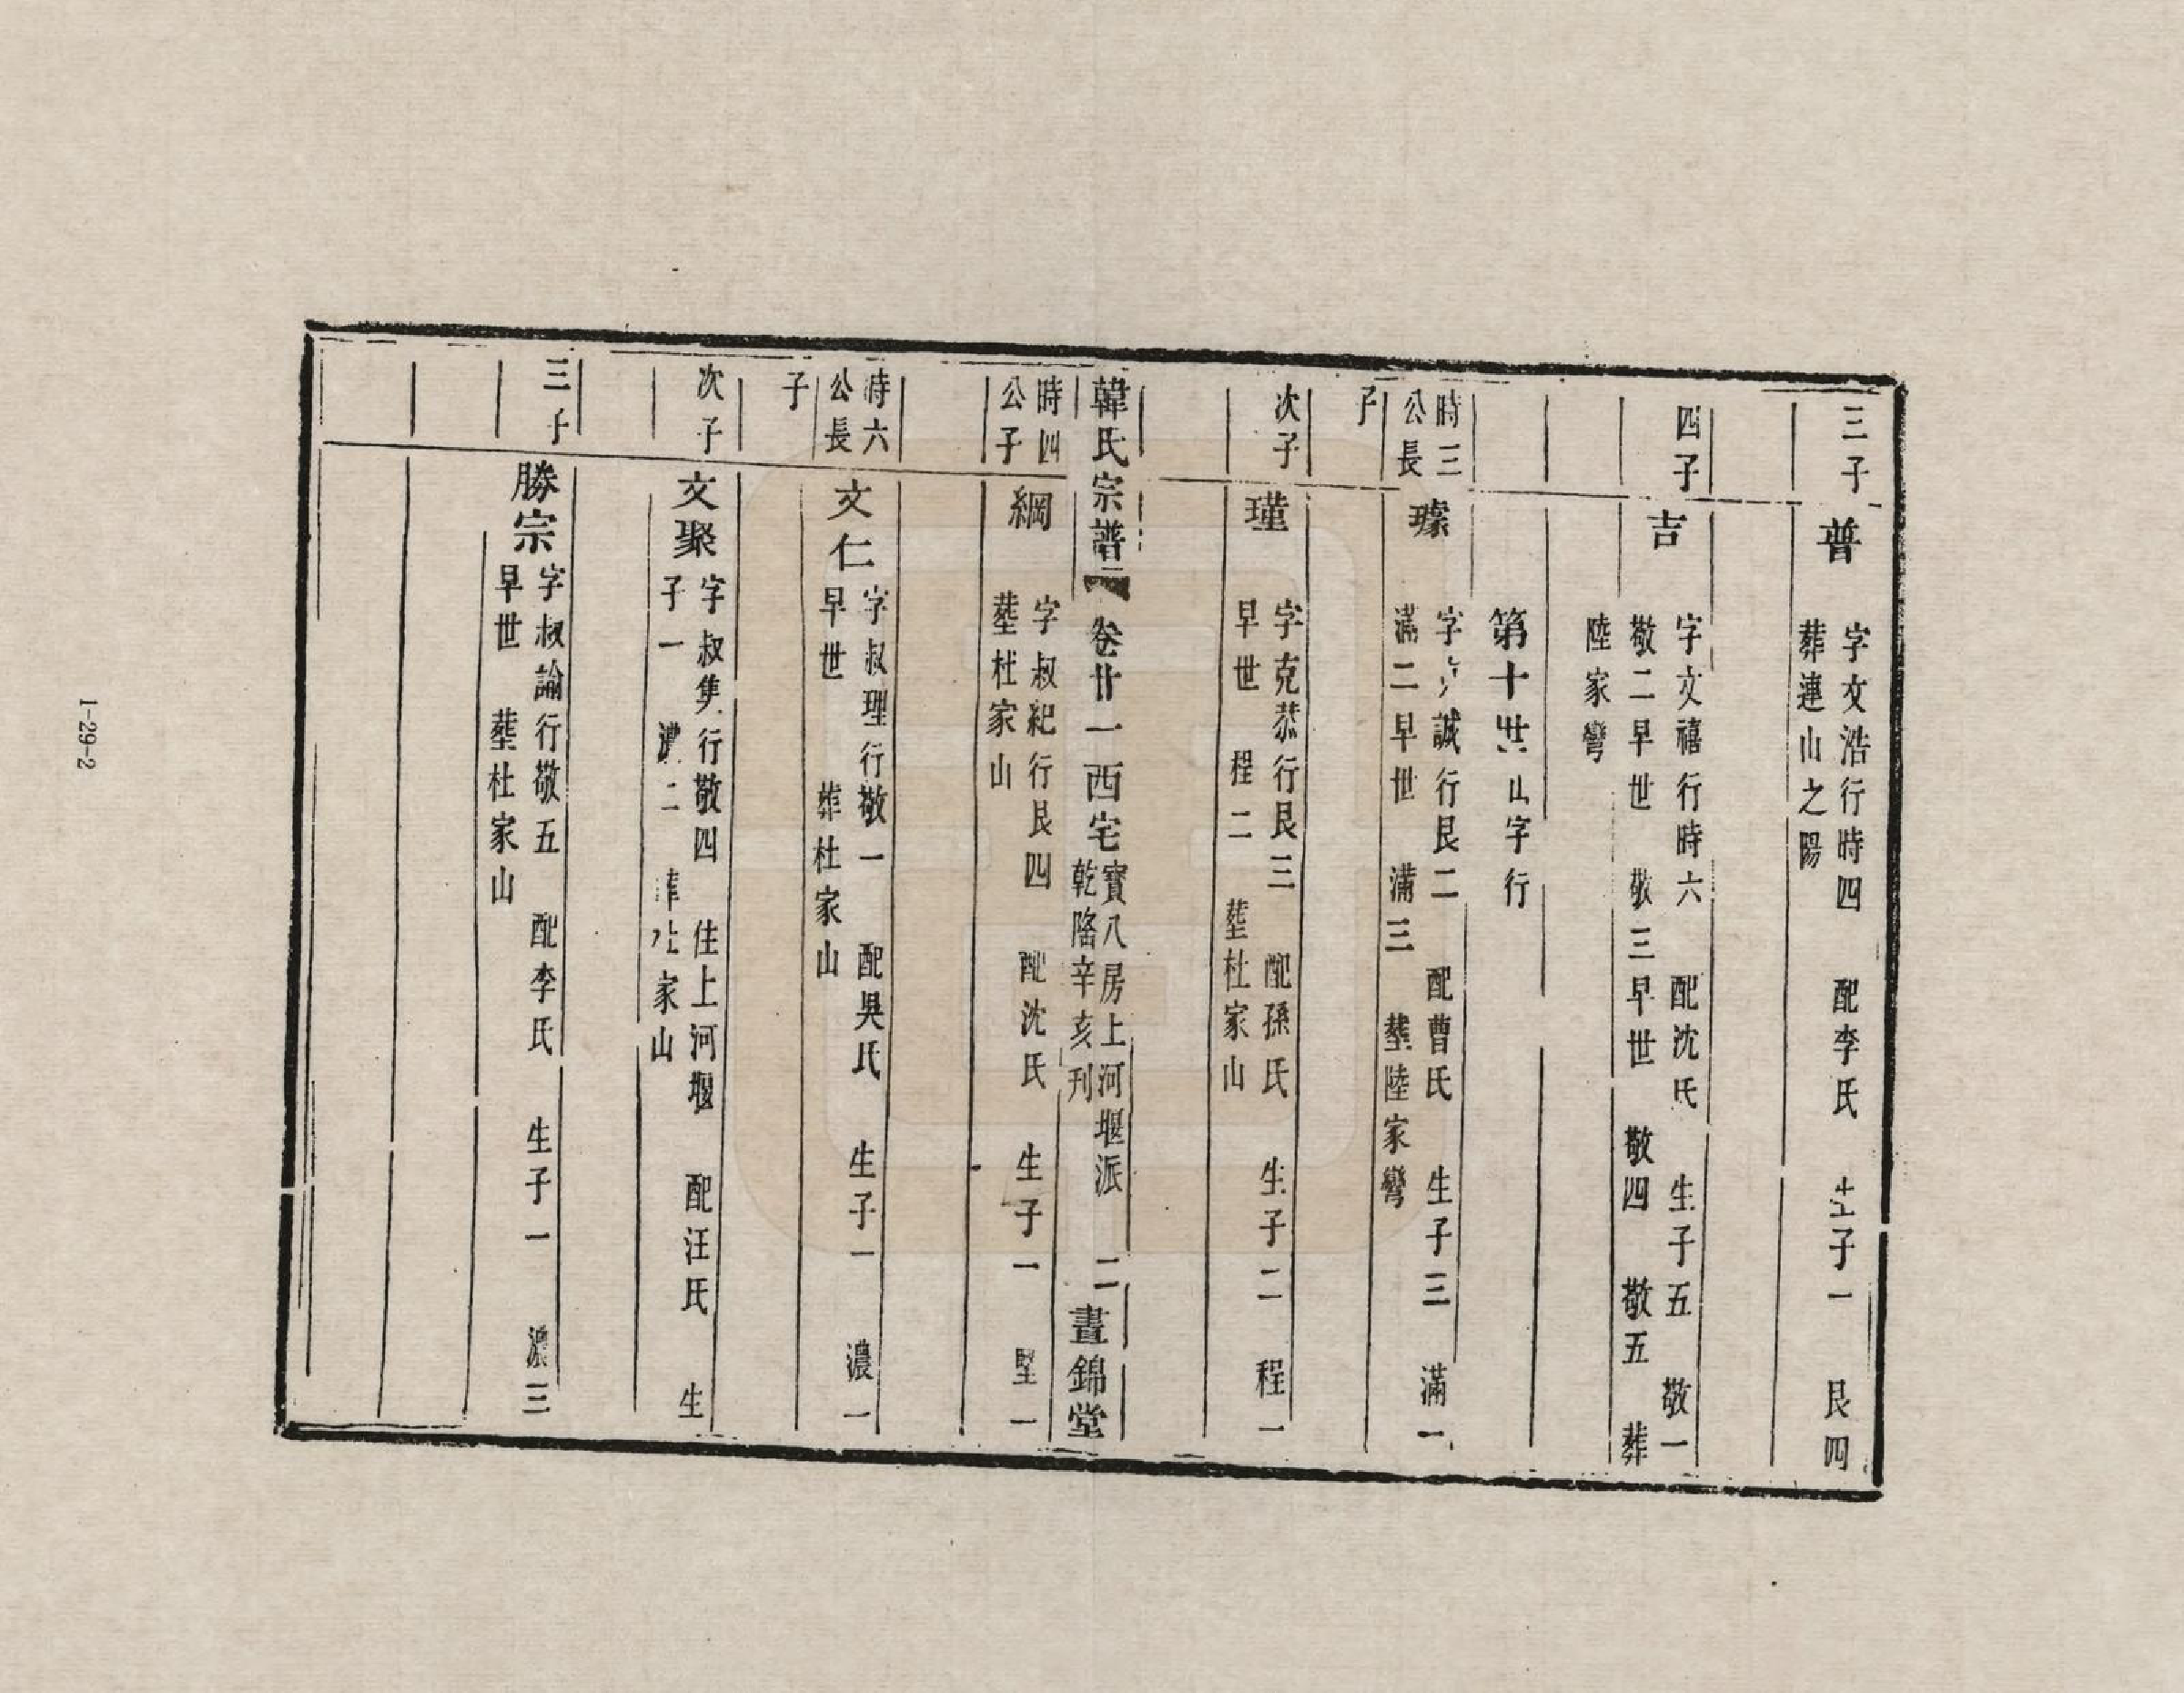 三子
普
字文浩行時四 配李氏 生子一 艮四
葬連山之陽
四子
吉
字文禧行時六 配沈氏 生子五 敬一
敬二早世 敬三早世 敬四 敬五 葬
陸家彎
第十世 字行
時三
公長
子
璩
字 誠行艮二 配曹氏 生子三 滿一
滿二早世 滿三 塟陸家彎
次子
瑾
字克恭行艮三 配孫氏 生子二 程一
早世 程二 塟杜家山
韓氏宗譜 卷廿一西宅
寳八房上河堰派 二
乾隆辛亥刊
晝錦堂
時四
公子
綱
字叔紀行艮四 配沈氏 生子一 堅一
塟杜家山
時六
公長
子
文仁
字叔理行敬一 配吳氏 生子一 濃一
早世 葬杜家山
次子
文聚
字叔隽行敬四 住上河堰 配汪氏 生
子一 濃二 葬杜家山
三子
勝宗
字叔論行敬五 配李氏 生子一 濃三
早世 塟杜家山
1-29-2